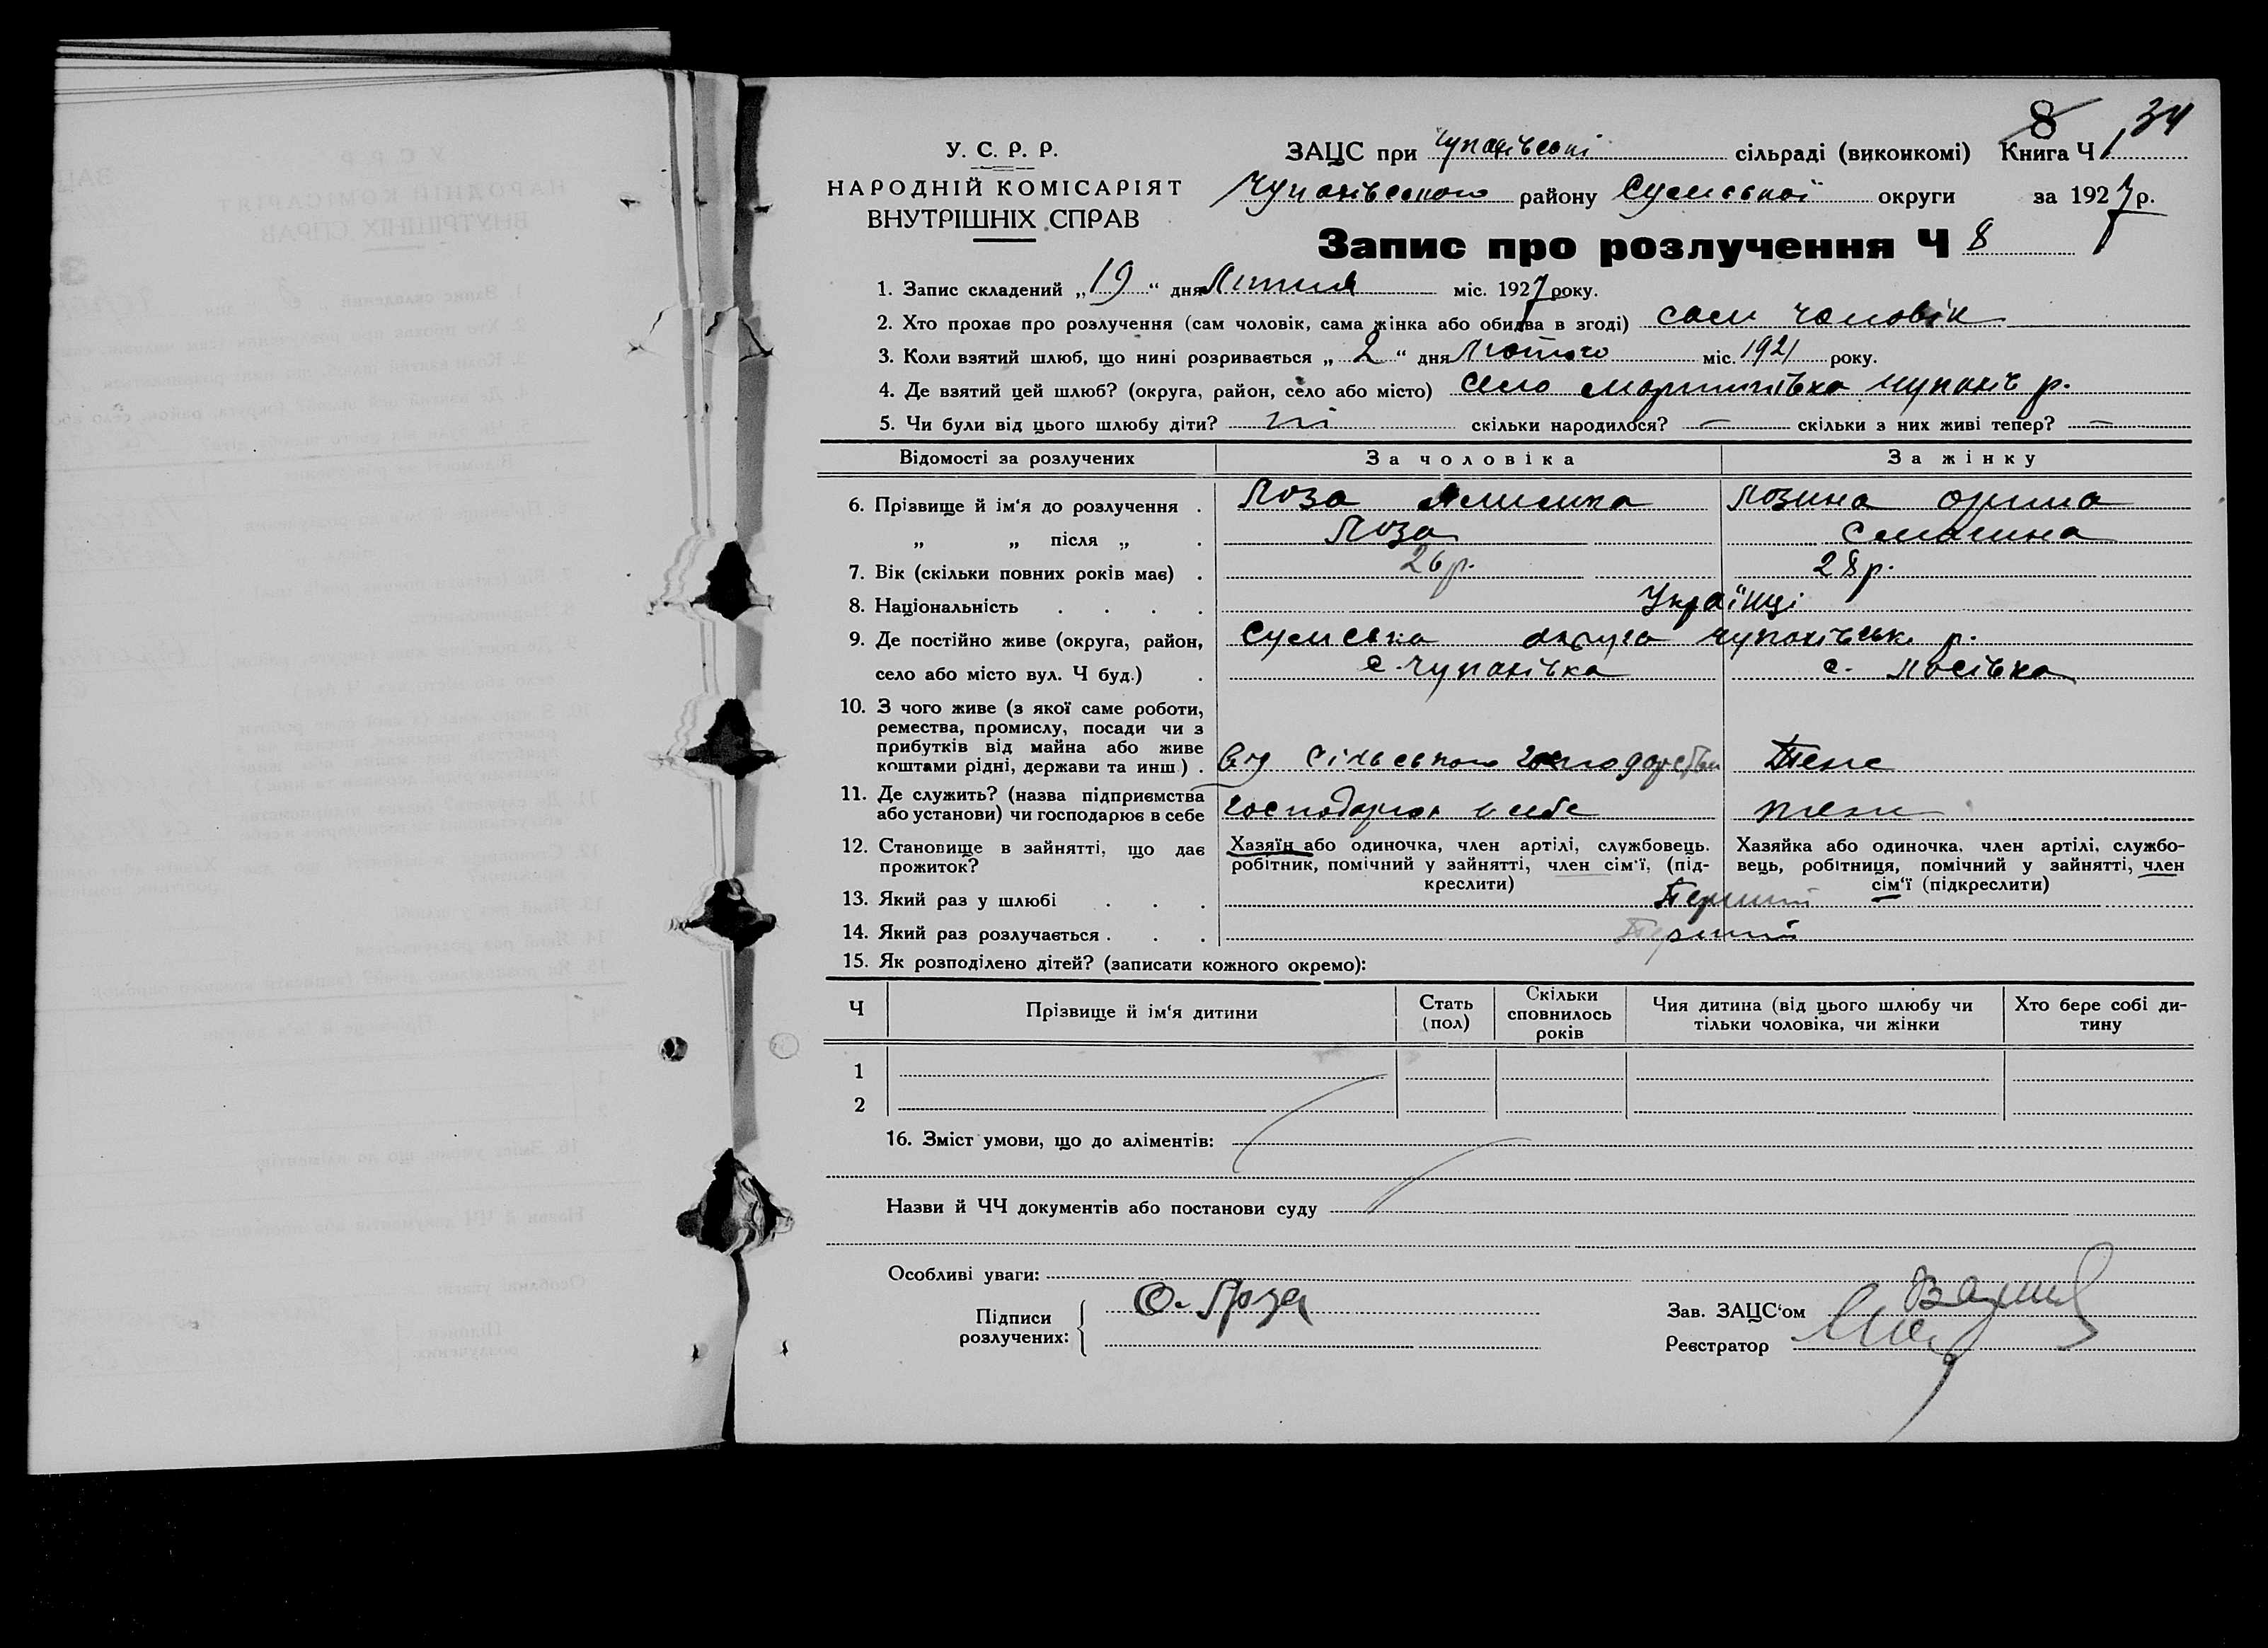 8 34
У. С. Р. Р.
НАРОДНІЙ КОМІСАРІЯТ
ВНУТРІШНІХ СПРАВ
ЗАЦС при Чупахівські сільраді (виконкомі) Книга Ч 1
Чупахівського району Сумської округи за 1927 р.
Запис про розлучення Ч 8
1. Запис складений „19“ дня Липня міс. 1927 року.
2. Хто прохає про розлучення (сам чоловік, сама жінка або обидва в згоді) сам чоловік
3. Коли взятий шлюб, що нині розривається „2“ дня Лютого міс. 1921 року.
4. Де взятий цей шлюб? (округа, район, село або місто) село Мартинівка Чупахів р.
5. Чи були від цього шлюбу діти? ні скільки народилося? — скільки з них живі тепер? —
Відомості за розлучених За чоловіка За жінку
6. Прізвище й ім‘я до розлучення . Лоза Лозина
„ „ після „ . Лоза
7. Вік (скільки повних років має) . 26 р. 28 р.
8. Національність . . . . Українці
9. Де постійно живе (округа, район, Сумська округа Чупахівськ р.
село або місто вул. Ч буд.) . с. Чупахівка с. Лосівка
10. З чого живе (з якої саме роботи,
ремества, промислу, посади чи з
прибутків від майна або живе
коштами рідні, держави та инш.) . Від сільського господарства Теже
11. Де служить? (назва підприємства
або установи) чи господарює в себе господарює в себе теже
12. Становище в зайнятті, що дає прожиток?
Хазяїн або одиночка, член артілі, службовець. робітник, помічний у зайнятті, член сім‘ї, (підкреслити)
Хазяйка або одиночка, член артілі, службовець, робітниця, помічний у зайнятті, член сім‘ї (підкреслити)
13. Який раз у шлюбі . . . Перший
14. Який раз розлучається . . . Перший
15. Як розподілено дітей? (записати кожного окремо):
Ч Прізвище й ім‘я дитини Стать (пол) Скільки сповнилось років Чия дитина (від цього шлюбу чи тільки чоловіка, чи жінки Хто бере собі дитину
1
2
16. Зміст умови, що до аліментів:
Назви й ЧЧ документів або постанови суду
Особливі уваги:
Підписи розлучених: О. Лоза
Зав. ЗАЦС‘ом
Реєстратор